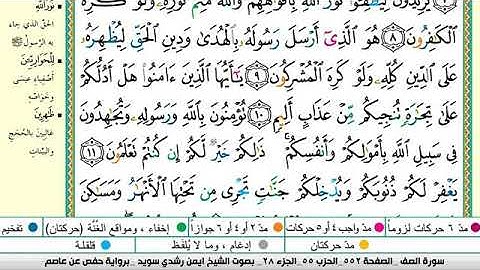 يُرِيدُونَ لِيُطْفِـُٔوا۟ نُورَ ٱللَّهِ بِأَفْوَٰهِهِمْ وَٱللَّهُ مُتِمُّ نُورِهِۦ وَلَوْ كَرِهَ
ٱلْكَٰفِرُونَ ٨ هُوَ ٱلَّذِىٓ أَرْسَلَ رَسُولَهُۥ بِٱلْهُدَىٰ وَدِينِ ٱلْحَقِّ لِيُظْهِرَهُۥ
عَلَى ٱلدِّينِ كُلِّهِۦ وَلَوْ كَرِهَ ٱلْمُشْرِكُونَ ٩ يَٰٓأَيُّهَا ٱلَّذِينَ ءَامَنُوا۟ هَلْ أَدُلُّكُمْ
عَلَىٰ تِجَٰرَةٍ تُنجِيكُم مِّنْ عَذَابٍ أَلِيمٍ ١٠ تُؤْمِنُونَ بِٱللَّهِ وَرَسُولِهِۦ وَتُجَٰهِدُونَ
فِى سَبِيلِ ٱللَّهِ بِأَمْوَٰلِكُمْ وَأَنفُسِكُمْ ۚ ذَٰلِكُمْ خَيْرٌ لَّكُمْ إِن كُنتُمْ تَعْلَمُونَ ١١
يَغْفِرْ لَكُمْ ذُنُوبَكُمْ وَيُدْخِلْكُمْ جَنَّٰتٍ تَجْرِى مِن تَحْتِهَا ٱلْأَنْهَٰرُ وَمَسَٰكِنَ
نُورَ اللَّهِ
الحق الذي جاء
به الرسول ﷺ
لِلْحَوَارِيِّينَ
أصفياء عيسى
وخواصه
ظَاهِرِينَ
غالبين بالحجج
والبينات
مدّ ٦ حركات لزوماً
مدّ ٢ أو ٤ أو ٦ جوازاً
إخفاء، ومواقع الغُنَّة (حركتان)
تفخيم
مدّ واجب ٤ أو ٥ حركات
مدّ حركتان
إدغام، وما لا يُلفَظ
قلقلة
سورة الصف _ الصفحة ٥٥٢ _ الحزب ٥٥ _ الجزء ٢٨ _ بصوت الشيخ ايمن رشدي سويد _ برواية حفص عن عاصم